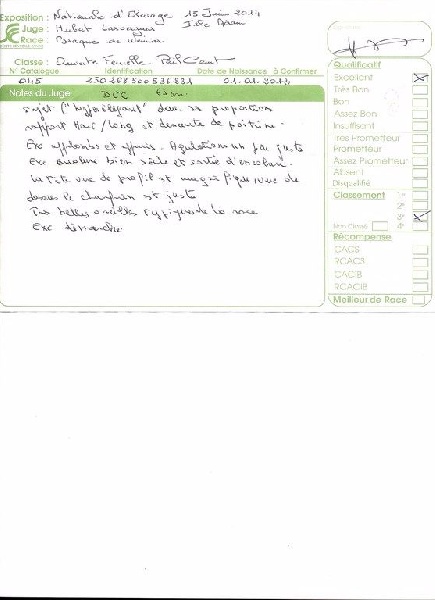 Exposition : Nationale d'Elevage 15 Juin 2014
Juge : Hubert
Race : Braque de Weimar
Classe : Ouverte Femelle - Poil Court
N° Catalogue Identification Date de Naissance À Confirmer
0115 250268500536831 01.01.2012
Notes du Juge
sujet "hyperélégant" dans sa proportion
rapport Haut/long et descente de poitrine.
Exc aplombs et appuis. Angulations un peu juste
Exc encolure bien sèche et sortie d'encolure
tête vue de profil et magnifique vue de
dessus le chanfrein est juste
Très belles oreilles typiques de la race
Exc démarche
Qualificatif
Excellent
Très Bon
Bon
Assez Bon
Insuffisant
Très Prometteur
Prometteur
Assez Prometteur
Absent
Disqualifié
Classement
Non Classé
Récompense
CACS
RCACS
CACIB
RCACIB
Meilleur de Race